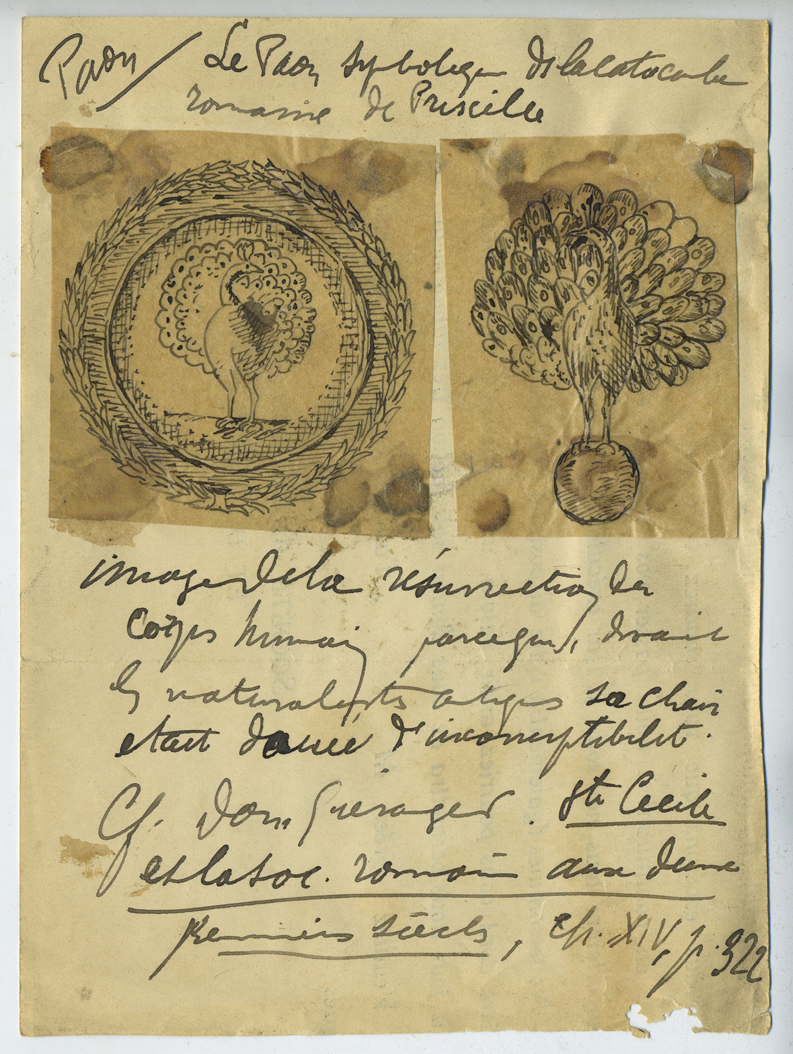 Paon / Le Paon symbolique de la catacombe
romaine de Priscille
image de la résurrection des
corps humain parceque, disait
les naturalistes antiques sa chair
etait douée d'incorruptibilité.
Cf. Dom Guéranger. Ste Cecile
et la soc. romaine aux deux
premiers siècles, ch. XIV, p. 322